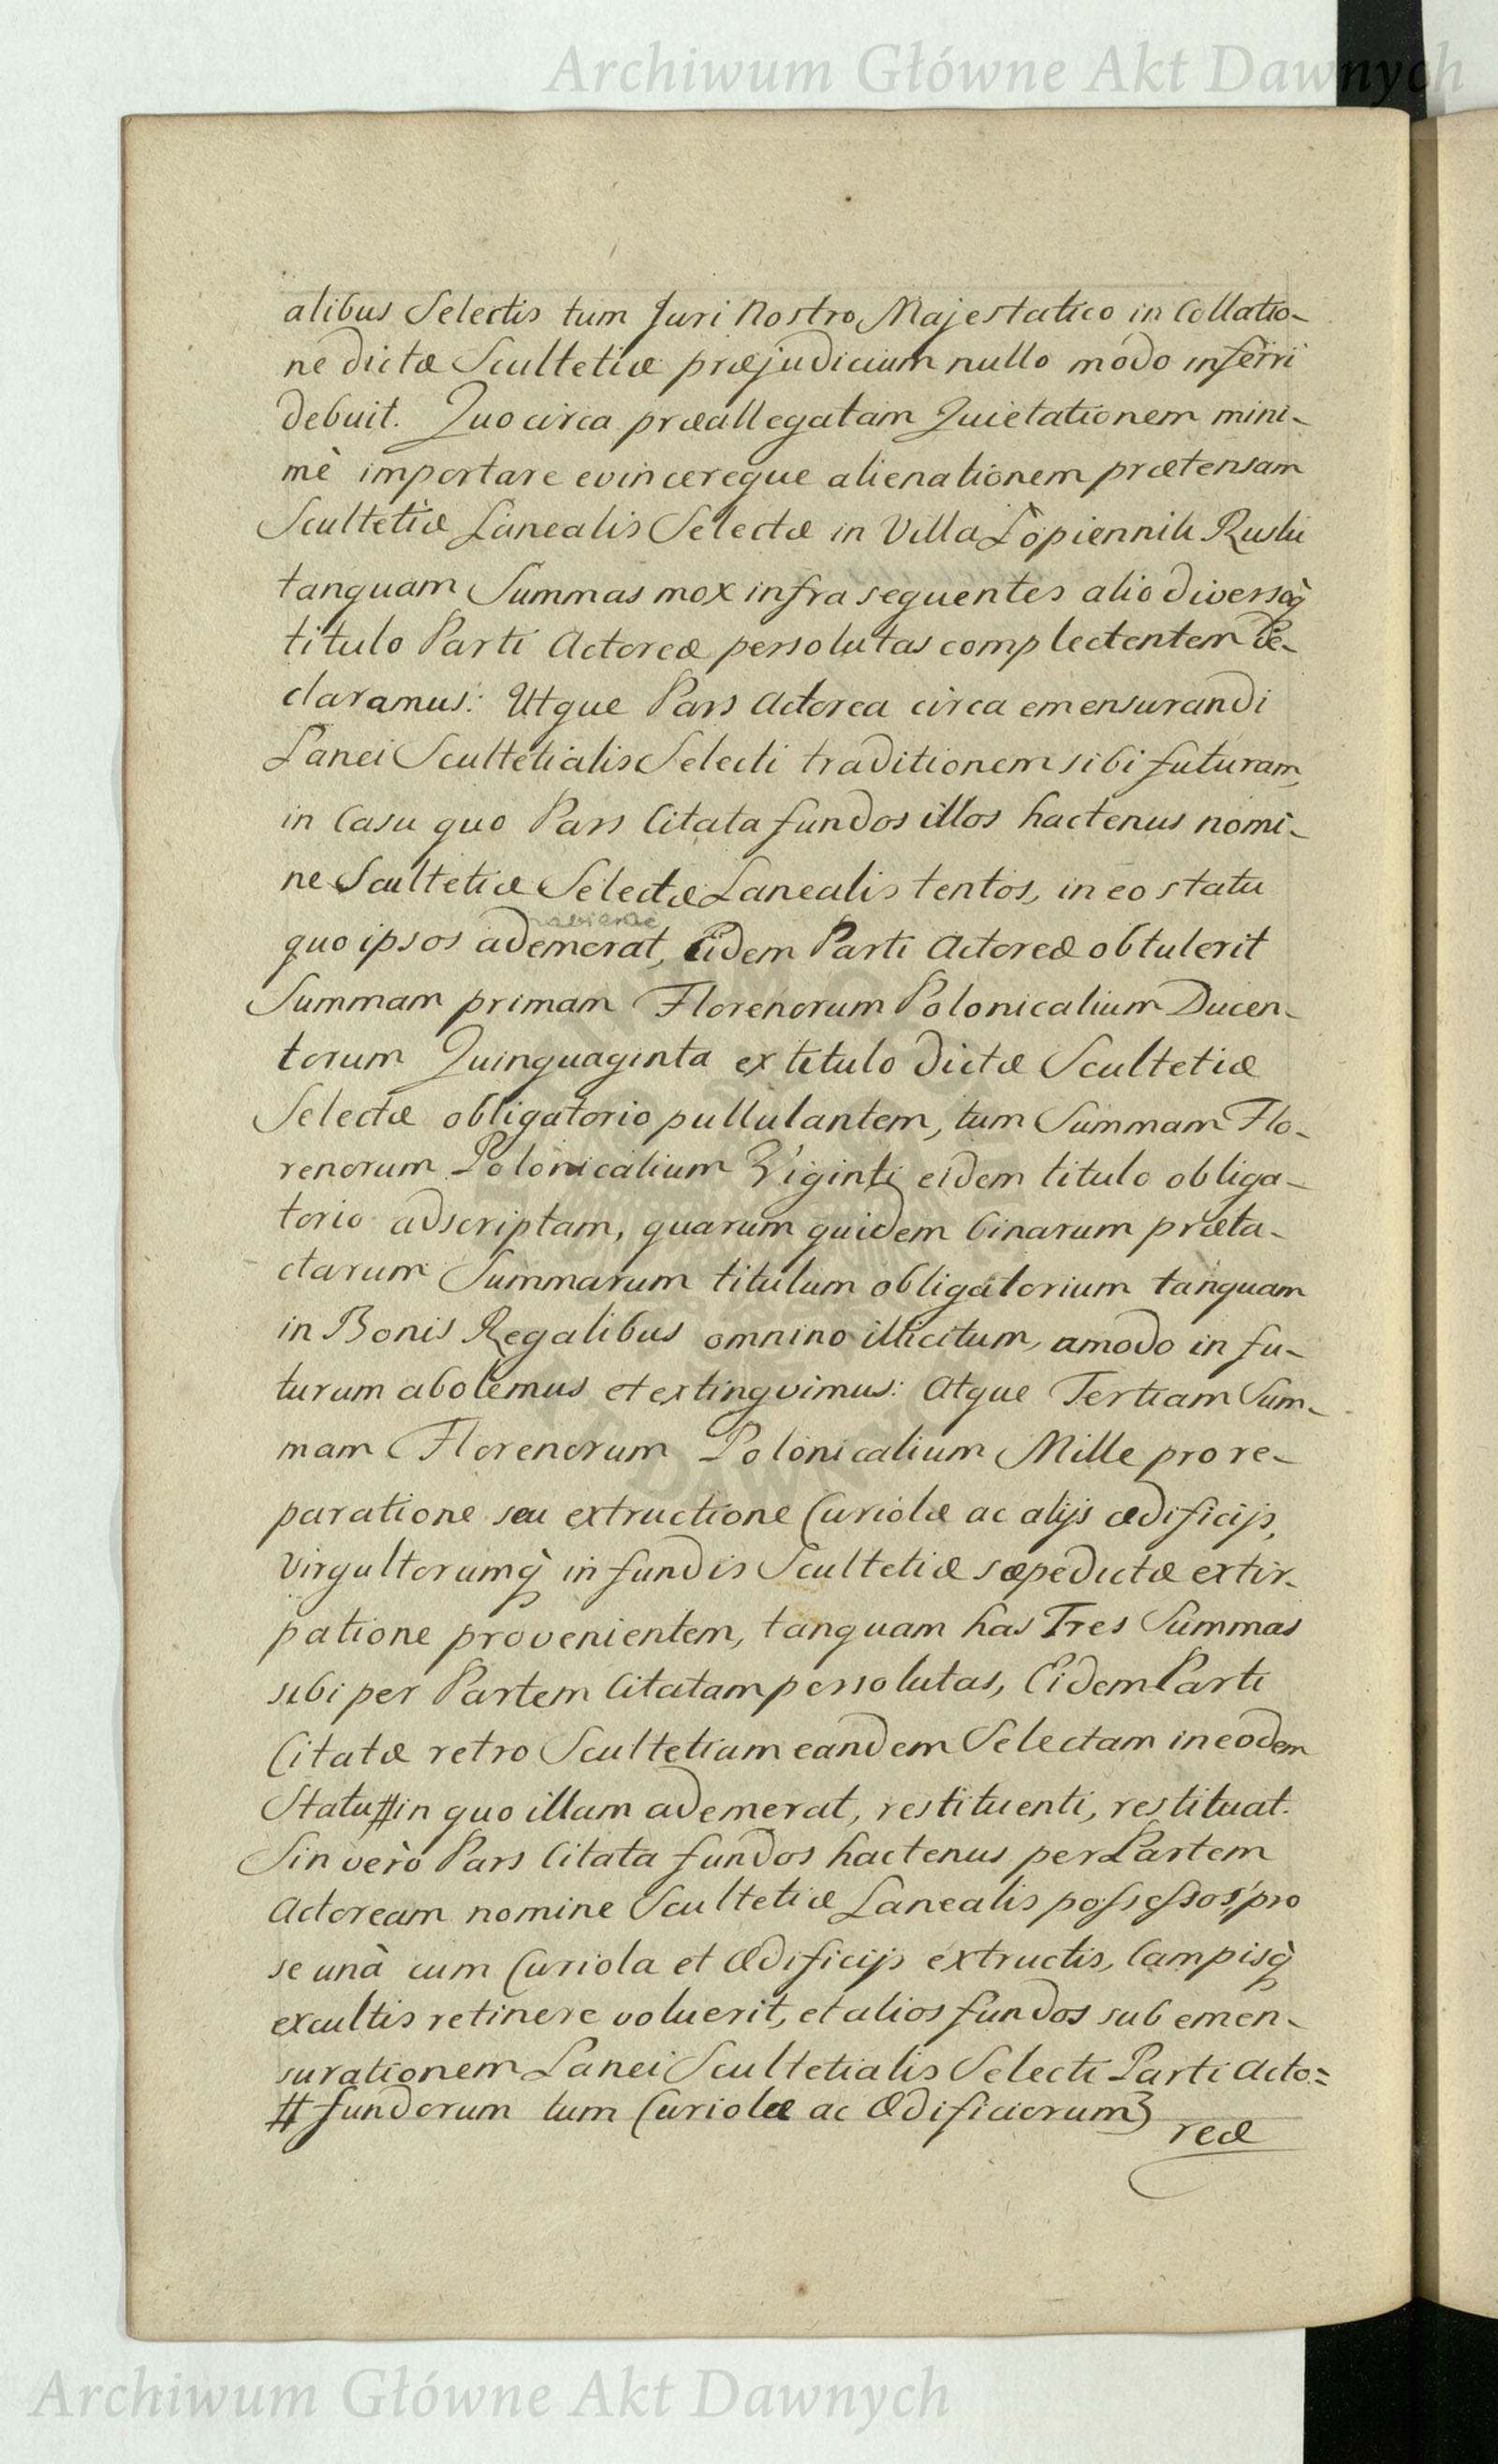 Archiwum Główne Akt Dawnych
alibus Selectis tum Juri Nostro Majestatico in Collatio-
ne dictæ Scultetiæ præjudicium nullo modo inferri
debuit. Quocirca præallegatam Quietationem mini-
mè importare evincereque alienationem prætensam
Scultetiæ Lanealis Selectæ in Villa Łopiennik Ruski
tanquam Summas mox infra sequentes alio diversoq̀
titulo Parti Actoreæ persolutas complectentem de-
claramus: Utque Pars Actorea circa emensurandi
Lanei Scultetialis Selecti traditionem sibi futuram,
in Casu quo Pars Citata fundos illos hactenus nomi-
ne Scultetiæ Selectæ Lanealis tentos, in eo statu
quo ipsos ademerat, Eidem Parti Actoreæ obtulerit
Summam primam Florenorum Polonicalium Ducen-
torum Quinquaginta ex titulo dictæ Scultetiæ
Selectæ obligatorio pullulantem, tum Summam Flo-
renorum Polonicalium Viginti eidem titulo obliga-
torio adscriptam, quarum quidem binarum præta-
ctarum Summarum titulum obligatorium tanquam
in Bonis Regalibus omnino illicitum, amodo in fu-
turum abolemus et extingvimus: Atque Tertiam Sum-
mam Florenorum Polonicalium Mille pro re-
paratione seu extructione Curiolæ ac alijs ædificijs,
Virgultorumq̀ in fundis Scultetiæ sæpedictæ extir-
patione provenientem, tanquam has Tres Summas
sibi per Partem Citatam persolutas, Eidem Parti
Citatæ retro Scultetiam eandem Selectam in eodem
Statu # in quo illam ademerat, restituenti, restituat.
Sin verò Pars Citata fundos hactenus per Partem
Actoream nomine Scultetiæ Lanealis possessos, pro
se unà cum Curiola et Ædificijs extructis, Campisq̀
excultis retinere voluerit, et alios fundos sub emen-
surationem Lanei Scultetialis Selecti Parti Acto=
# fundorum tum Curiolæ ac Ædificiorum
reæ
Archiwum Główne Akt Dawnych